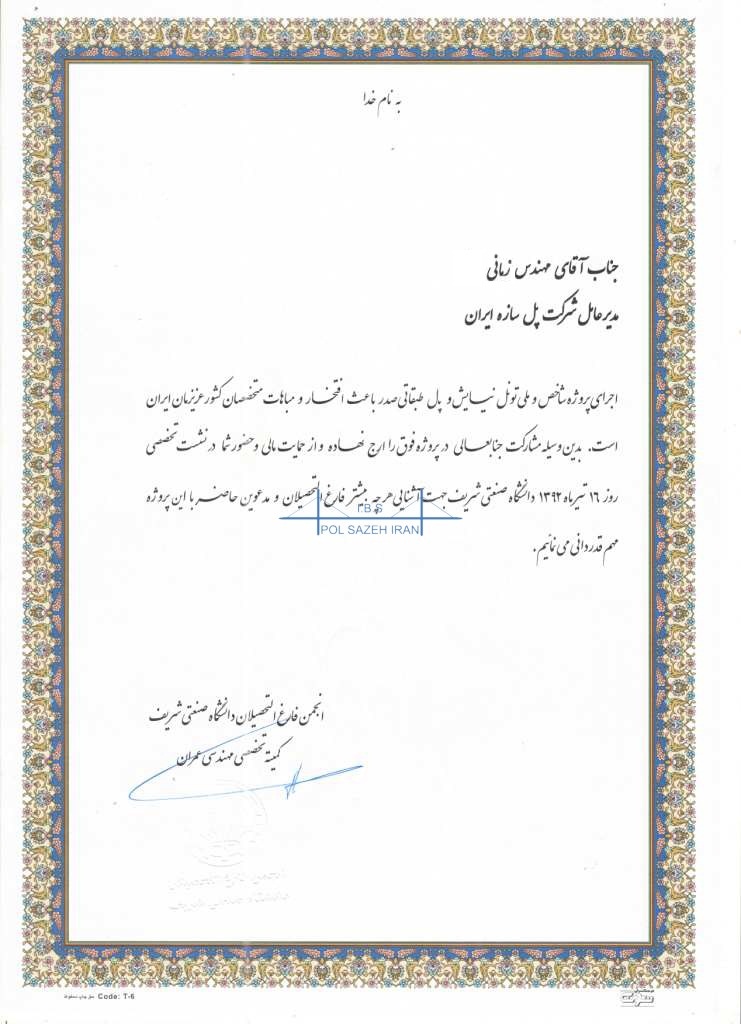 به نام خدا
جناب آقای مهندس زمانی
مدیرعامل شرکت پل سازه ایران
اجرای پروژه شاخص و ملی تونل نیایش و پل طبقاتی صدر باعث افتخار و مباهات متخصصان کشور عزیزمان ایران
است. بدین وسیله مشارکت جنابعالی در پروژه فوق را ارج نهاده و از حمایت مالی و حضور شما در نشست تخصصی
روز ۱۶ تیرماه ۱۳۹۲ دانشگاه صنعتی شریف جهت آشنایی هر چه بیشتر فارغ التحصیلان و مدعوین حاضر با این پروژه
I.B.S
POL SAZEH IRAN
مهم قدردانی می نمائیم.
انجمن فارغ التحصیلان دانشگاه صنعتی شریف
کمیته تخصصی مهندسی عمران
Code: T-6